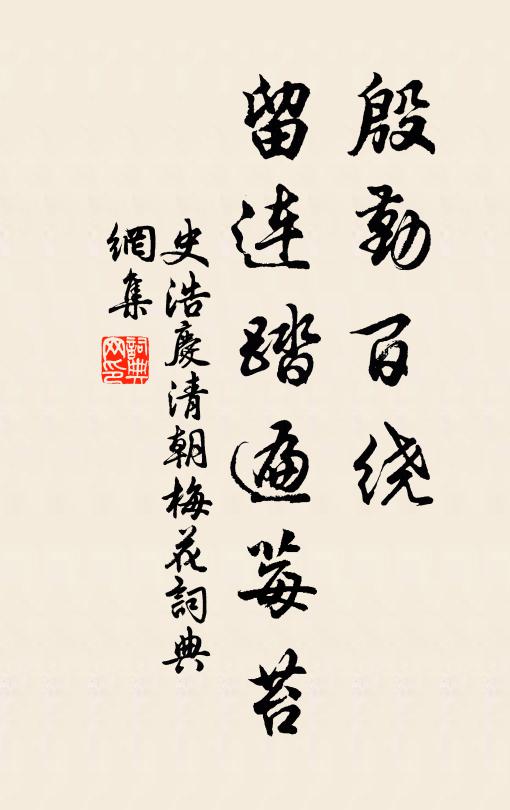 殷勤百绕
留連踏遍莓苔
史浩慶清朝梅花詞典
網集
詞典
网印